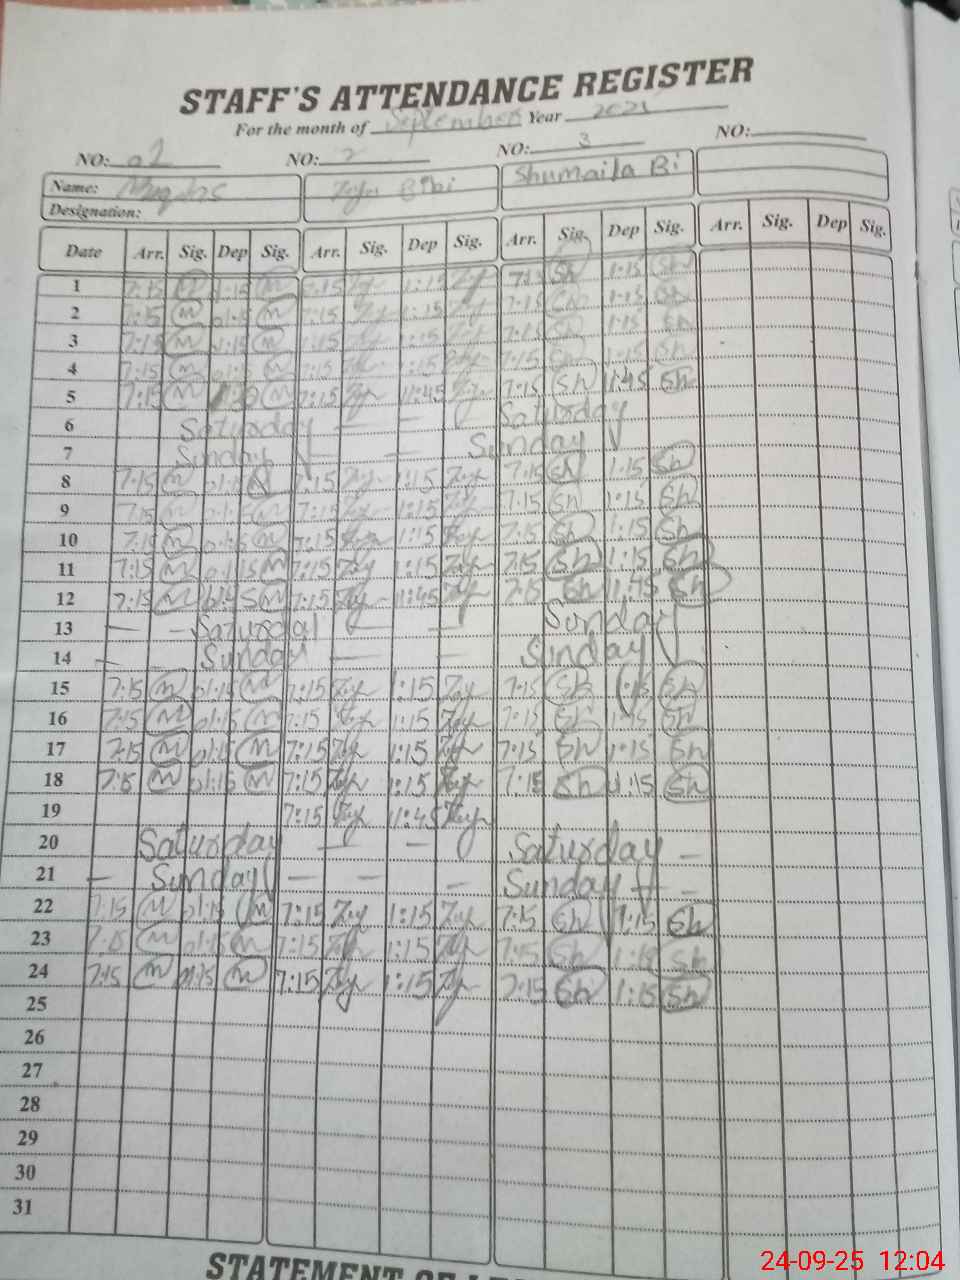 STAFF'S ATTENDANCE REGISTER
For the month of September Year 2025
NO: 02 NO: 2 NO: 3 NO:
Name: Bibi Shumaila Bi
Designation:
Date Arr. Sig. Dep Sig. Arr. Sig. Dep Sig. Arr. Sig. Dep Sig. Arr. Sig. Dep Sig.
1 7:15 m 01:15 m 7:15 Zy 1:15 Zy 7:15 Sh 1:15 Sh
2 7:15 m 01:15 m 7:15 Zy 1:15 Zy 7:15 Sh 1:15 Sh
3 7:15 m 01:15 m 7:15 Zy 1:15 Zy 7:15 Sh 1:15 Sh
4 7:15 m 01:15 m 7:15 Zy 1:15 Zy 7:15 Sh 1:15 Sh
5 7:15 m m 7:15 Zy 11:45 Zy 7:15 Sh 11:45 Sh
6 Saturday — — Saturday
7 Sunday — — Sunday
8 7:15 m 01:15 m 7:15 Zy 1:15 Zy 7:15 Sh 1:15 Sh
9 7:15 m 01:15 m 7:15 Zy 1:15 Zy 7:15 Sh 1:15 Sh
10 7:15 m 01:15 m 7:15 Zy 1:15 Zy 7:15 Sh 1:15 Sh
11 7:15 m 01:15 m 7:15 Zy 1:15 Zy 7:15 Sh 1:15 Sh
12 7:15 m m 7:15 Zy 11:45 Zy 7:15 Sh 11:45 Sh
13 — — Saturday — — Sunday
14 — — Sunday — — Sunday
15 7:15 m 01:15 m 7:15 Zy 1:15 Zy 7:15 Sh 1:15 Sh
16 7:15 m 01:15 m 7:15 Zy 1:15 Zy 7:15 Sh 1:15 Sh
17 7:15 m 01:15 m 7:15 Zy 1:15 Zy 7:15 Sh 1:15 Sh
18 7:15 m 01:15 m 7:15 Zy 1:15 Zy 7:15 Sh 1:15 Sh
19 7:15 Zy 11:45 Zy
20 Saturday — — Saturday —
21 — Sunday — — — Sunday —
22 7:15 m 01:15 m 7:15 Zy 1:15 Zy 7:15 Sh 1:15 Sh
23 7:15 m 01:15 m 7:15 Zy 1:15 Zy 7:15 Sh 1:15 Sh
24 7:15 m 01:15 m 7:15 Zy 1:15 Zy 7:15 Sh 1:15 Sh
25
26
27
28
29
30
31
STATEMENT OF
24-09-25 12:04